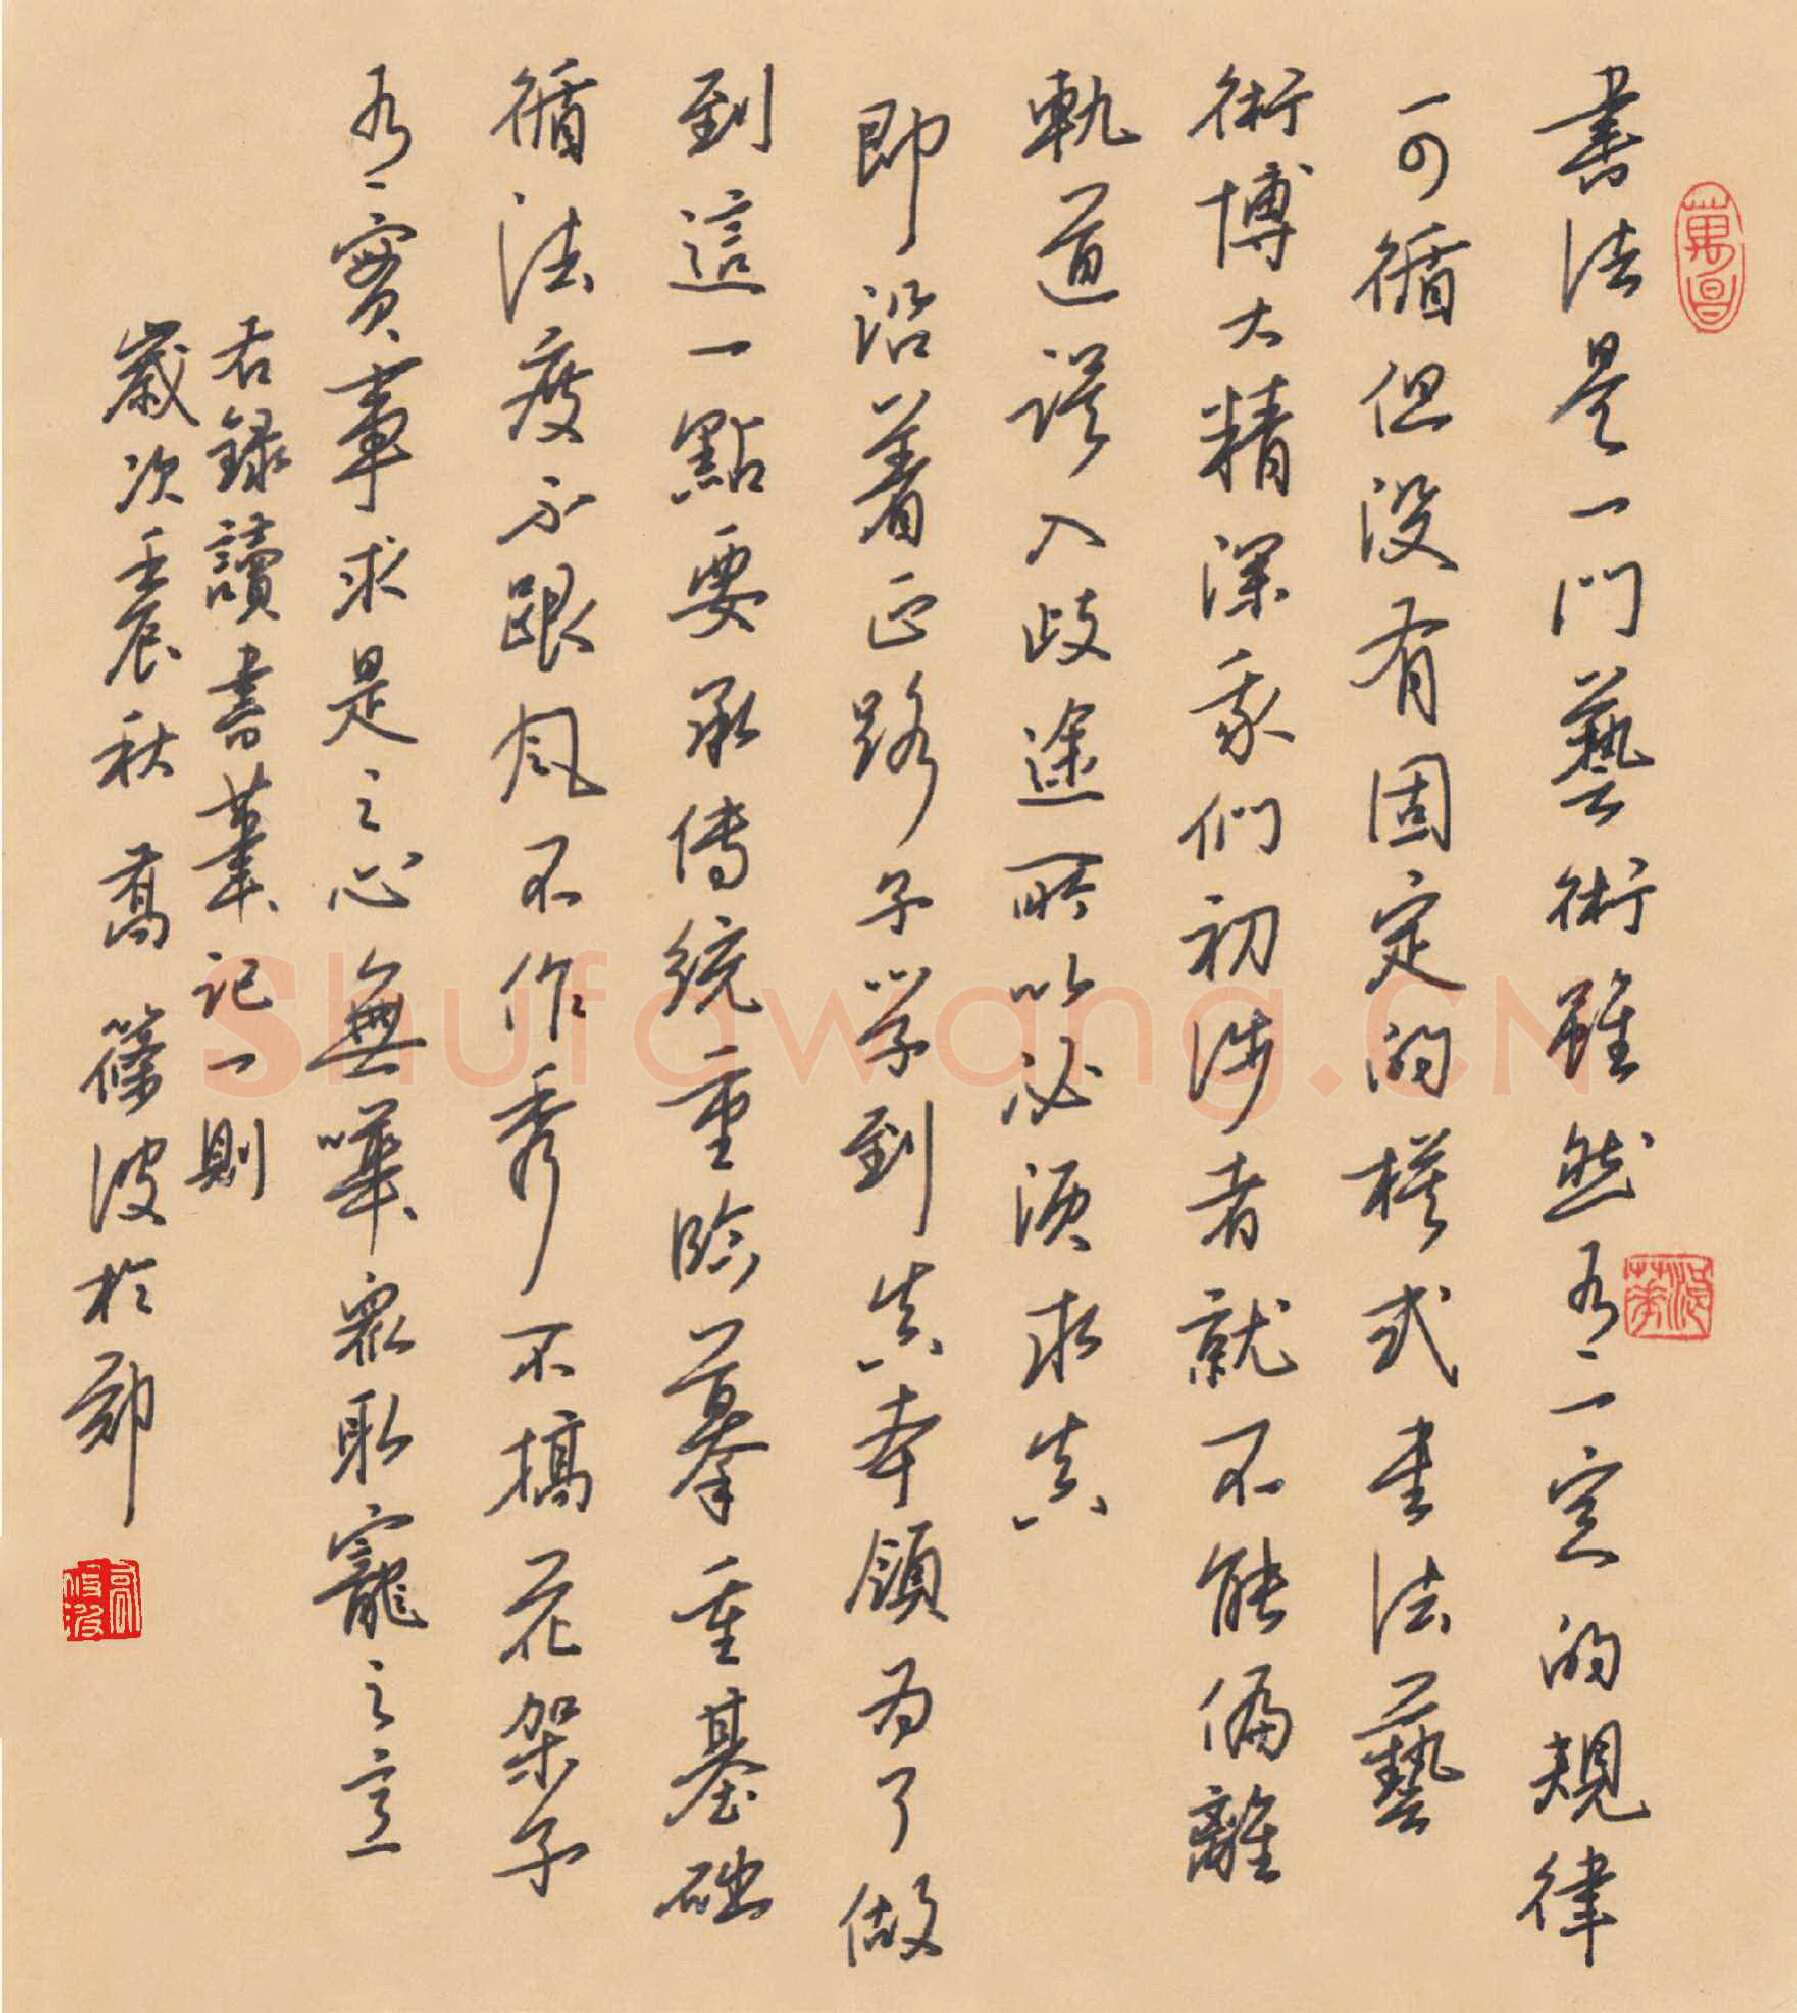 書法是一門藝術雖然有一定的規律
可循但没有固定的模式書法藝
術博大精深我們初涉者就不能偏離
軌道誤入歧途所以必須求真
即沿着正路子学到真本領为了做
到這一點要承傳統重臨摹重基础
循法度不跟风不作秀不搞花架子
有實事求是之心無嘩衆取寵之意
右録讀書筆記一則
歲次壬辰秋高篠波於鄭
Shufawang.CN